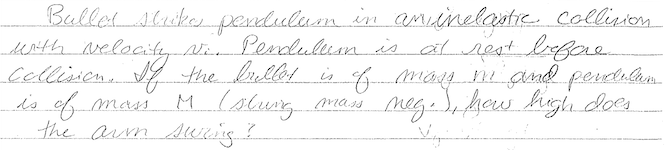 Bullet strikes pendulum in an inelastic collision
with velocity vi. Pendulum is at rest before
collision. If the bullet is of mass m and pendulum
is of mass M (string mass neg.), how high does
the arm swing?